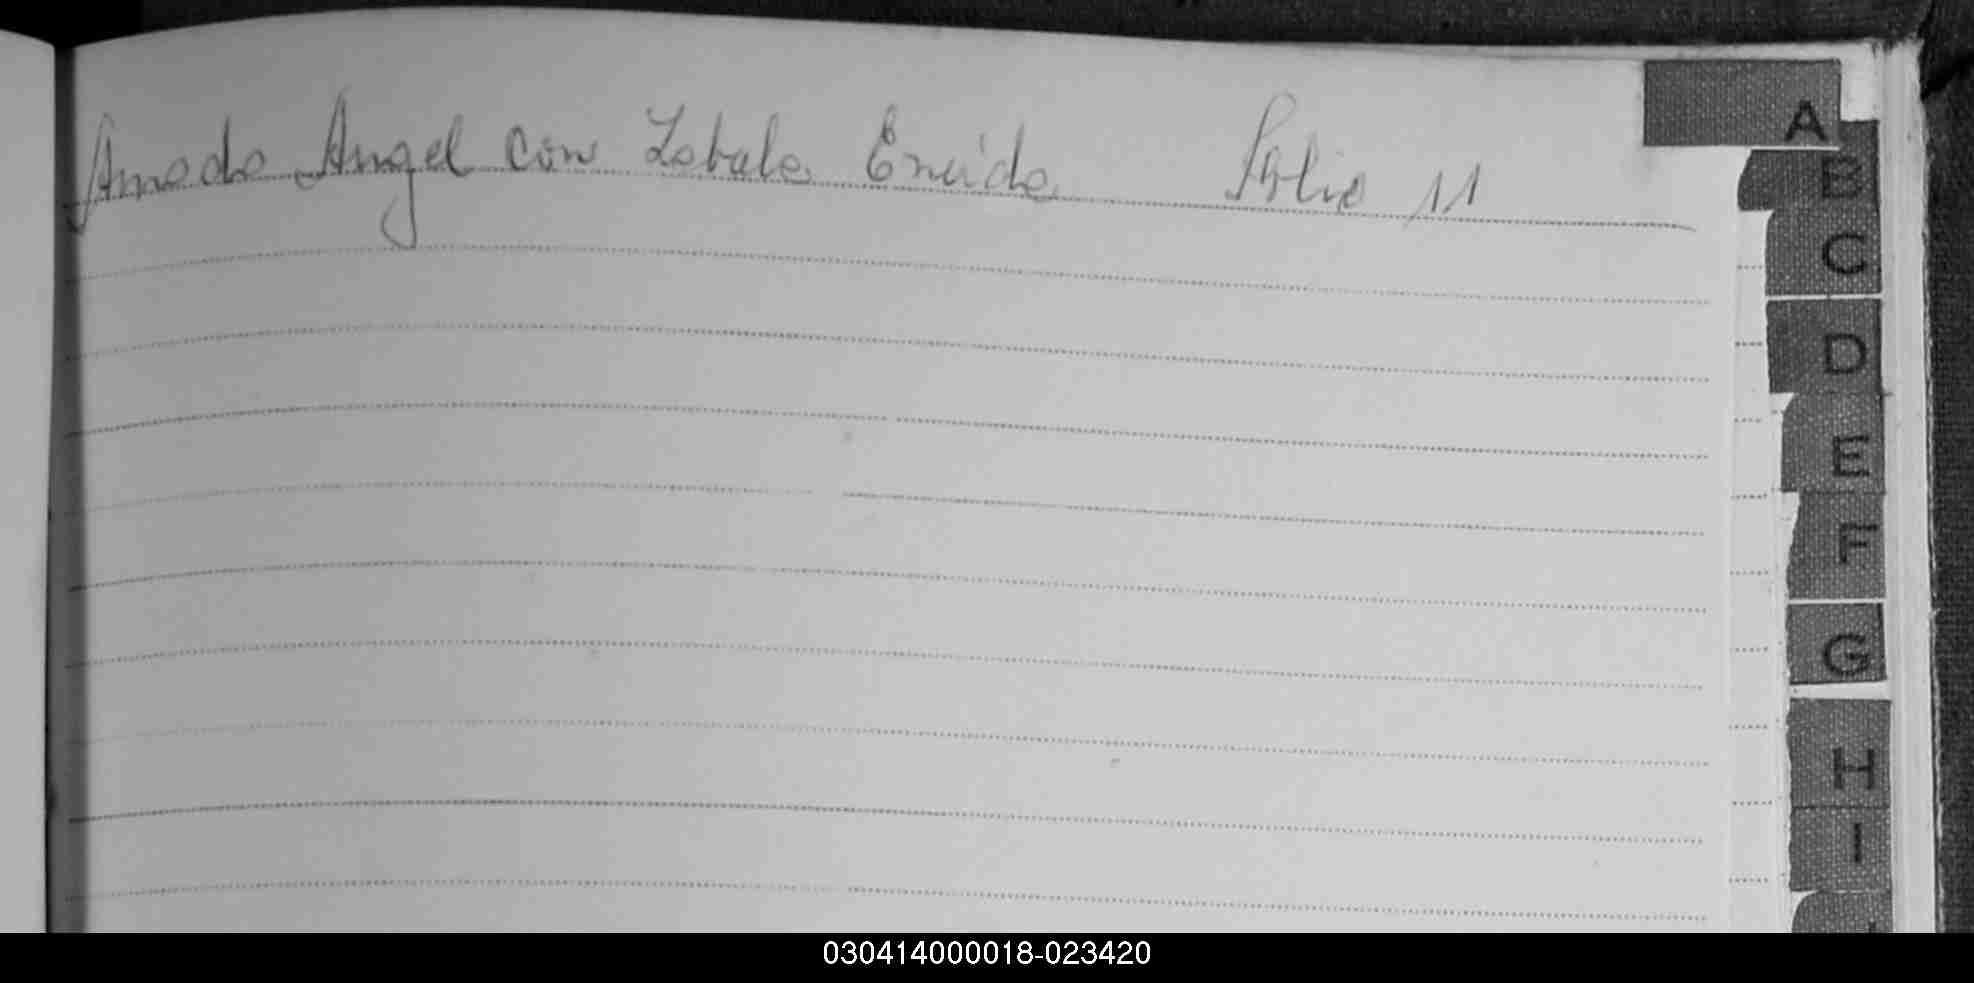 Amado Angel con Zabala Eneida Folio 11
A
B
C
D
E
F
G
H
I
030414000018-023420